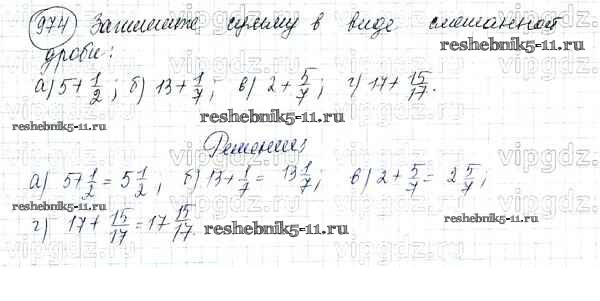 974 Запишите сумму в виде смешанной
дроби:
а) 5+1/2; б) 13+1/7; в) 2+5/7; г) 17+15/17.
Решение
а) 5+1/2=5 1/2; б) 13+1/7= 13 1/7; в) 2+5/7= 2 5/7;
г) 17+15/17=17 15/17.
reshebnik5-11.ru
reshebnik5-11.ru
reshebnik5-11.ru
reshebnik5-11.ru
reshebnik5-11.ru
vipgdz.ru